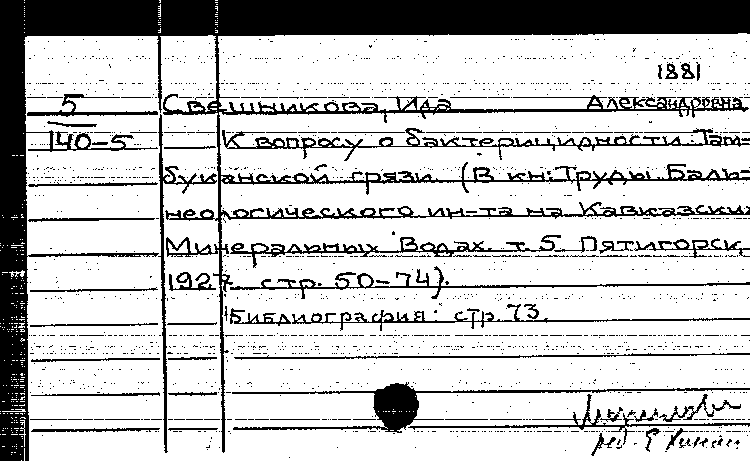 1881
5 Свешникова, Ида Александровна
140-5 К вопросу о бактерицидности Там-
буканской грязи. (В кн: Труды Баль-
неологического ин-та на Кавказски
Минеральных Водах. т. 5. Пятигорск,
1927. стр. 50-74).
Библиография: стр. 73.
ред. Е